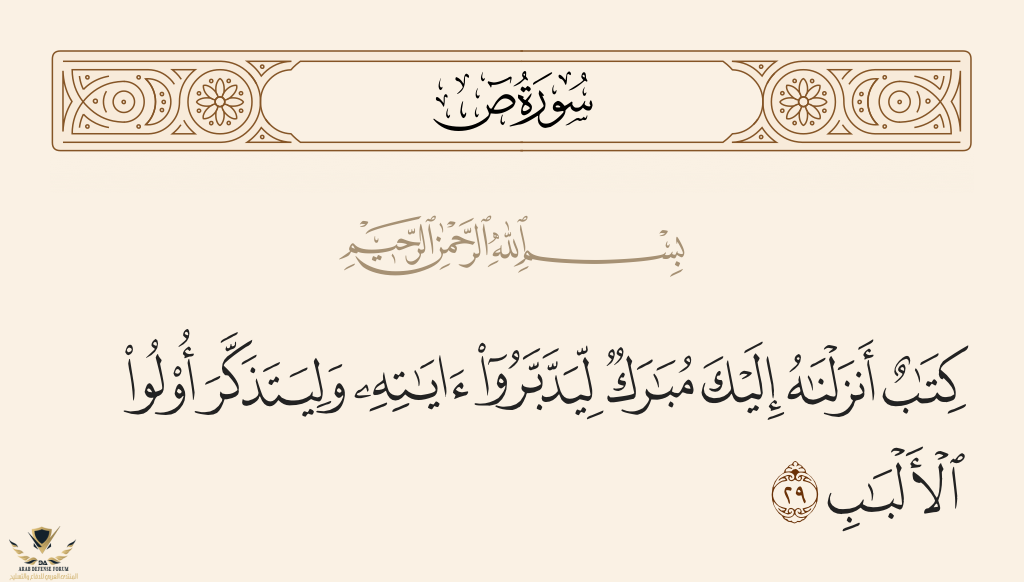 سُورَةُ صٓ
بِسۡمِ ٱللَّهِ ٱلرَّحۡمَٰنِ ٱلرَّحِيمِ
كِتَٰبٌ أَنزَلۡنَٰهُ إِلَيۡكَ مُبَٰرَكٞ لِّيَدَّبَّرُوٓاْ ءَايَٰتِهِۦ وَلِيَتَذَكَّرَ أُوْلُواْ
ٱلۡأَلۡبَٰبِ ٢٩
DA
ARAB DEFENSE FORUM
المنتدى العربي للدفاع والتسليح